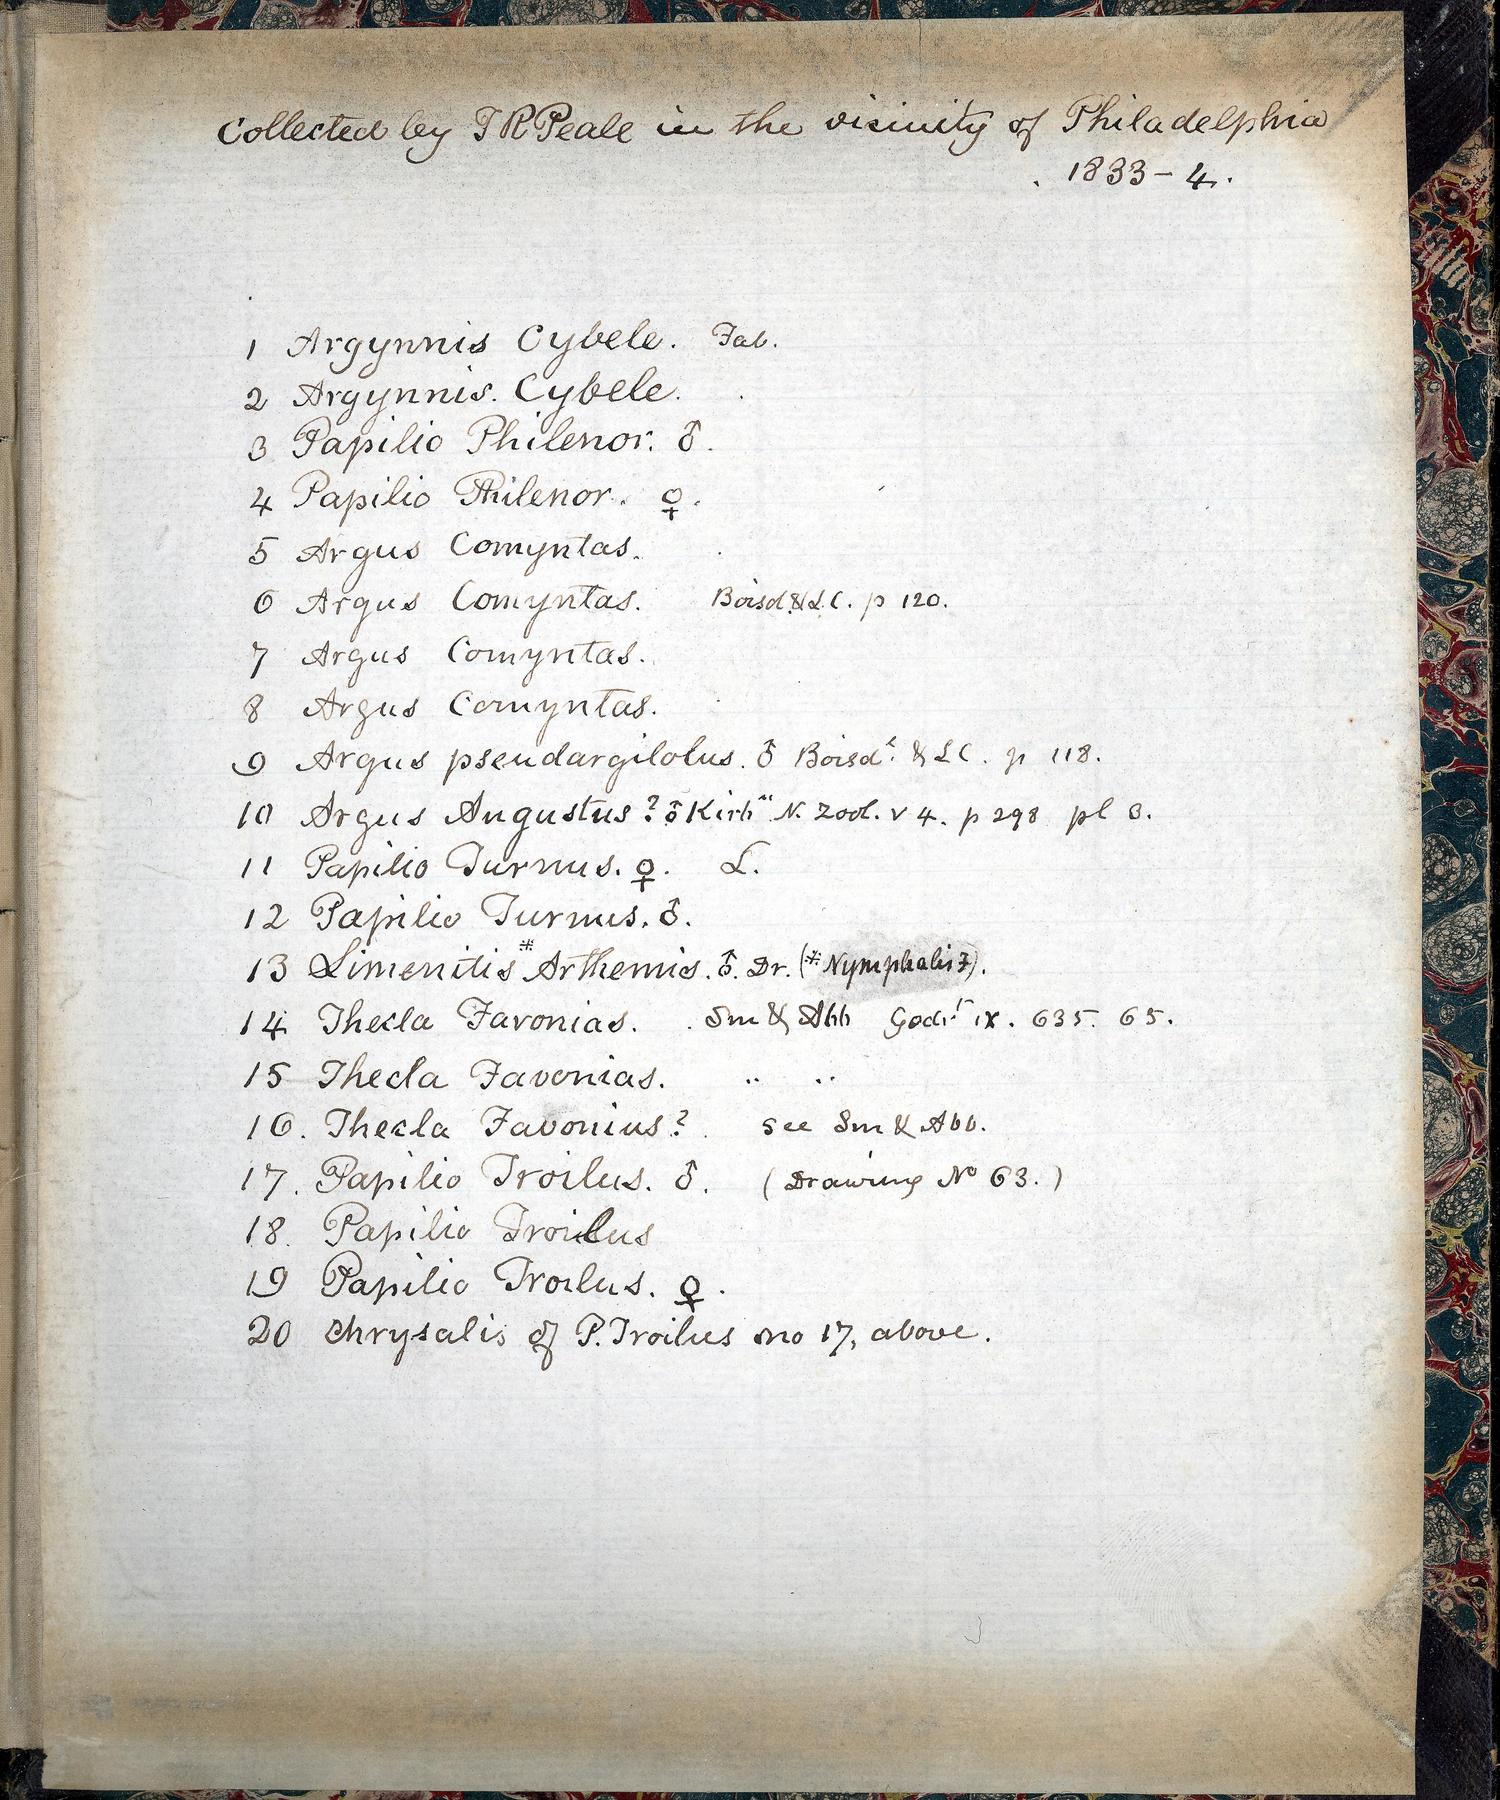 Collected by T R Peale in the vicinity of Philadelphia
1833-4.
1 Argynnis Cybele. Fab.
2 Argynnis. Cybele.
3 Papilio Philenor. ♂.
4 Papilio Philenor. ♀.
5 Argus Comyntas.
6 Argus Comyntas. Boisd. & L.C. p 120.
7 Argus Comyntas.
8 Argus Comyntas.
9 Argus pseudargilolus. ♂ Boisd. & LC. p 118.
10 Argus Augustus? ♂ N. Zool. v 4. p 298 pl 3.
11 Papilio Turnus. ♀. L.
12 Papilio Turnus. ♂.
13 Limenitis* Arthemis. ♂. Dr. (*Nymphalis F).
14 Thecla Favonias. Sm & Abb Godt ix. 635. 65.
15 Thecla Favonias. " "
16. Thecla Favonius? see Sm & Abb.
17. Papilio Troilus. ♂. (Drawing No 63.)
18. Papilio Troilus
19 Papilio Troilus. ♀.
20 Chrysalis of P. Troilus no 17, above.